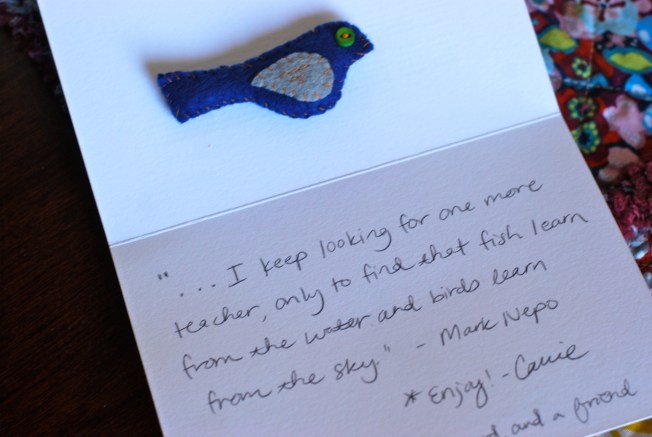 "... I keep looking for one more
teacher, only to find that fish learn
from the water and birds learn
from the sky" - Mark Nepo
* Enjoy! - Carrie
and a friend